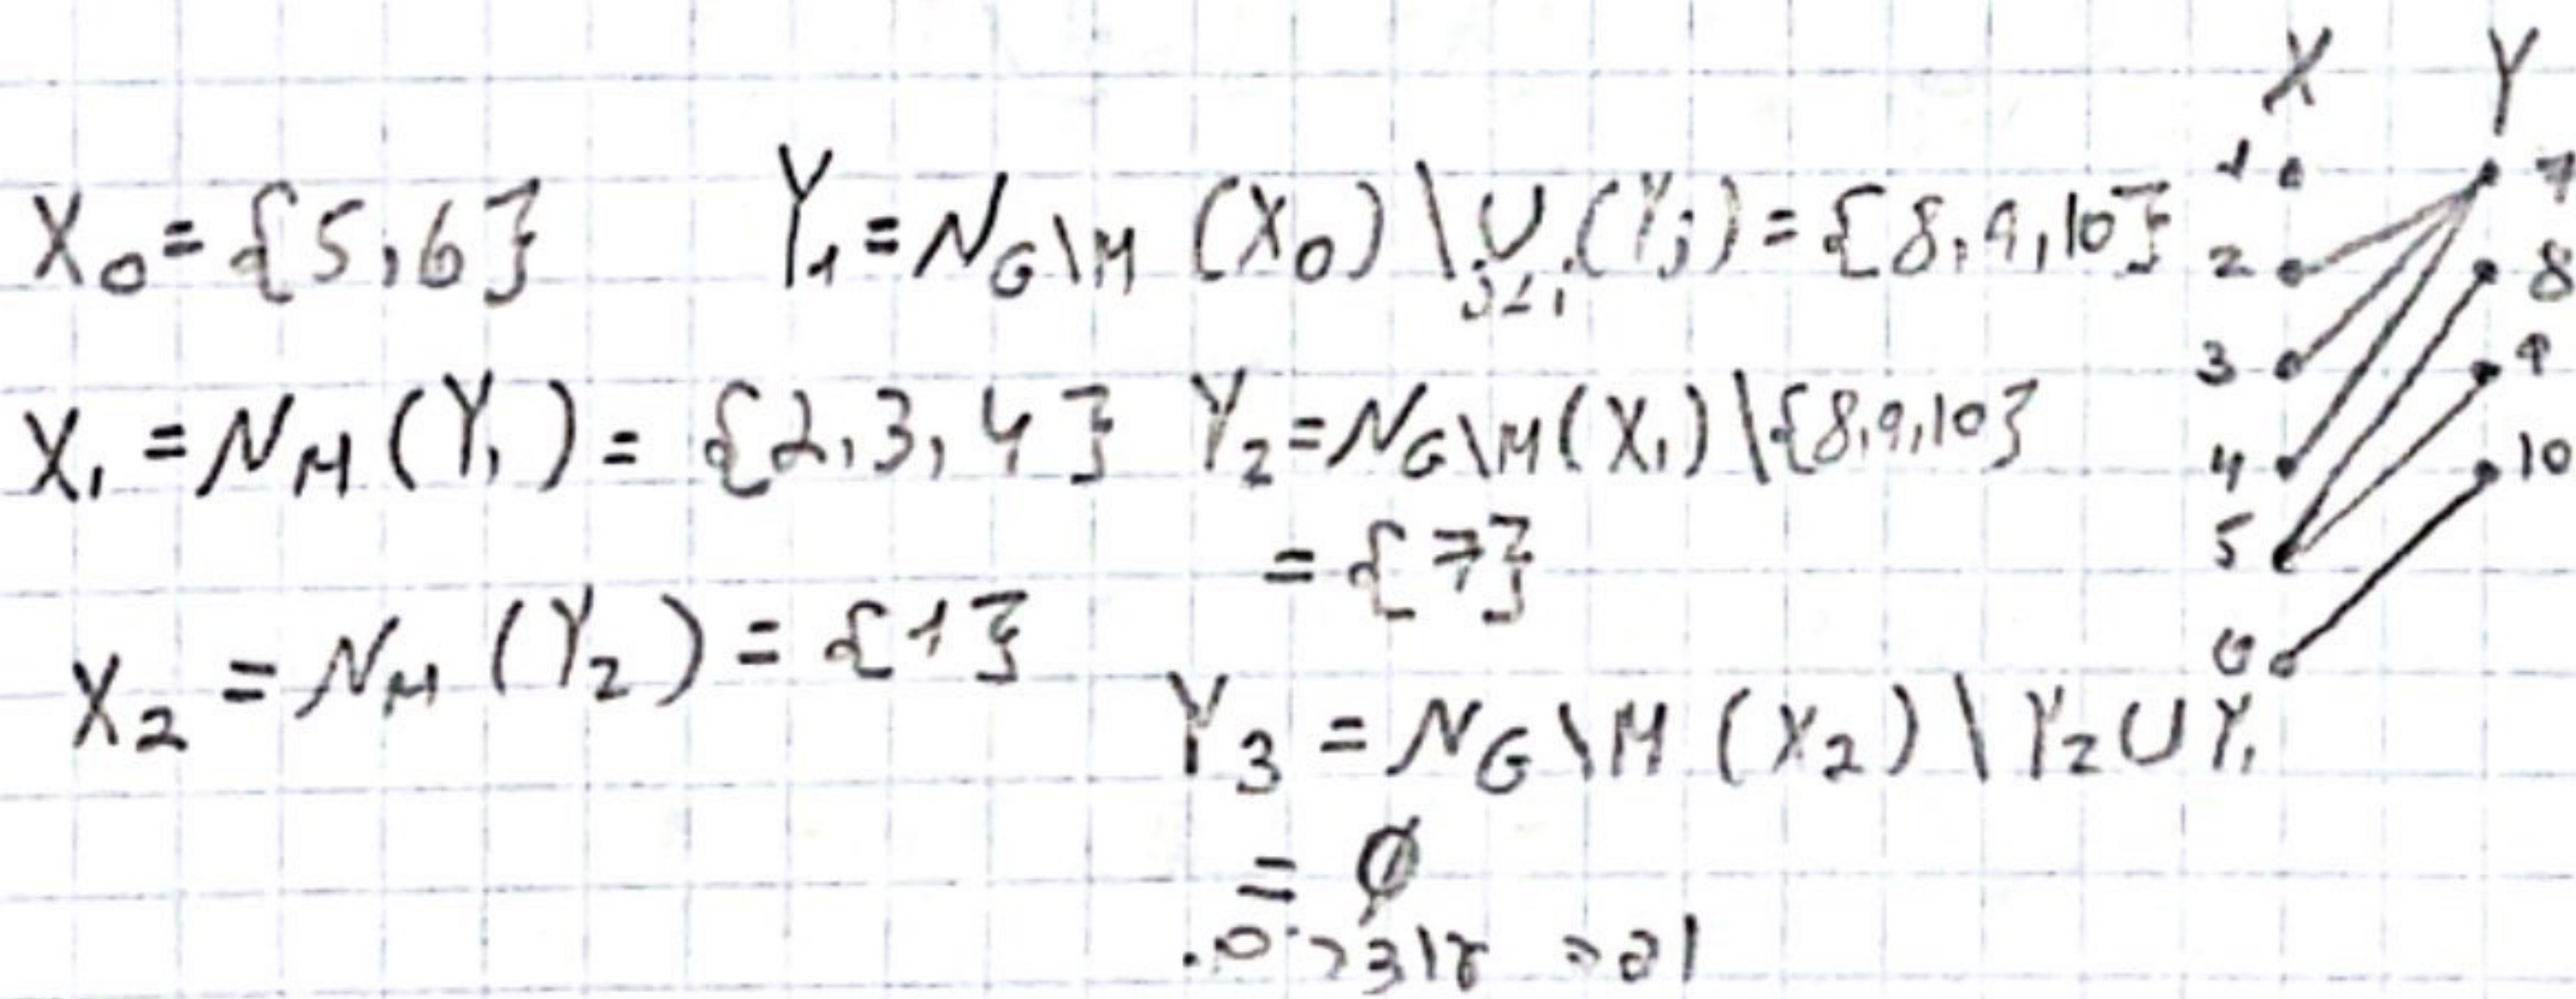 X Y
X₀ = {5,6} Y₁ = N_{G\M} (X₀) \ ∪_{j<i} (Yⱼ) = {8,9,10}
X₁ = N_M (Y₁) = {2,3,4} Y₂ = N_{G\M} (X₁) \ {8,9,10}
= {7}
X₂ = N_M (Y₂) = {1}
Y₃ = N_{G\M} (X₂) \ Y₂ ∪ Y₁
= ∅
1 7
2 8
3 9
4 10
5
6